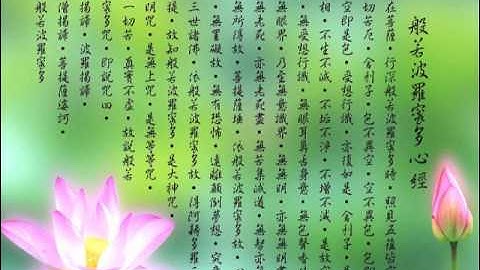 般若波羅蜜多心經
在菩薩・行深般若波羅蜜多時・照見五蘊皆
切苦厄・舍利子・色不異空・空不異色
空即是色・受想行識・亦復如是・舍利子
相・不生不滅・不垢不淨・不增不減・是故
無受想行識・無眼耳鼻舌身意・無色聲香
無眼界・乃至無意識界・無無明・亦無無
無老死・亦無老死盡・無苦集滅道・無智亦
無所得故・菩提薩埵・依般若波羅蜜多故
無罣礙故・無有恐怖・遠離顛倒夢想・究
三世諸佛・依般若波羅蜜多故・得阿耨多
提・故知般若波羅蜜多・是大神咒
明咒・是無上咒・是無等等咒
一切苦・真實不虛・故說般若
蜜多咒・即說咒曰
揭諦・波羅揭諦
僧揭諦・菩提薩婆訶
般若波羅蜜多